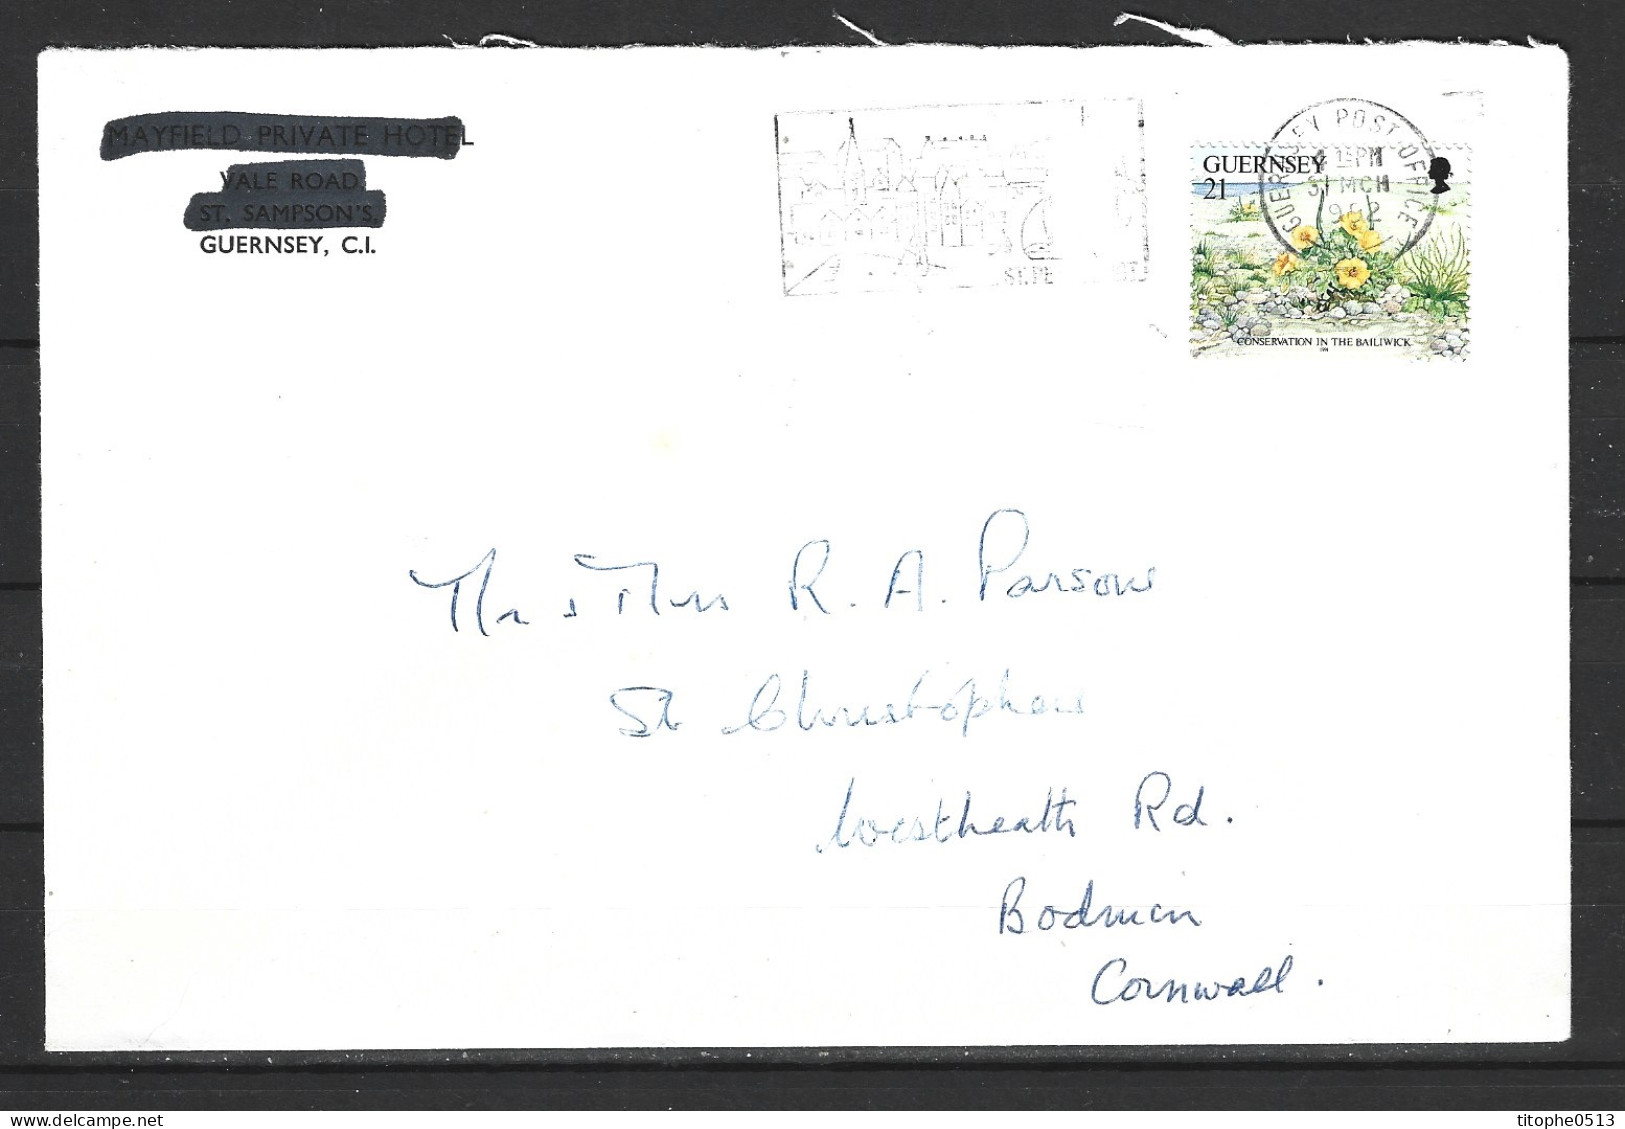 MAYFIELD PRIVATE HOTEL
VALE ROAD,
ST. SAMPSON'S,
GUERNSEY, C.I.
ST. PE
GUERNSEY POST OFFICE
PM
31 MCH
GUERNSEY
21
CONSERVATION IN THE BAILIWICK
1991
Mr & Mrs R. A. Parsons
St Christophers
Westheath Rd.
Bodmin
Cornwall.
titophe0513